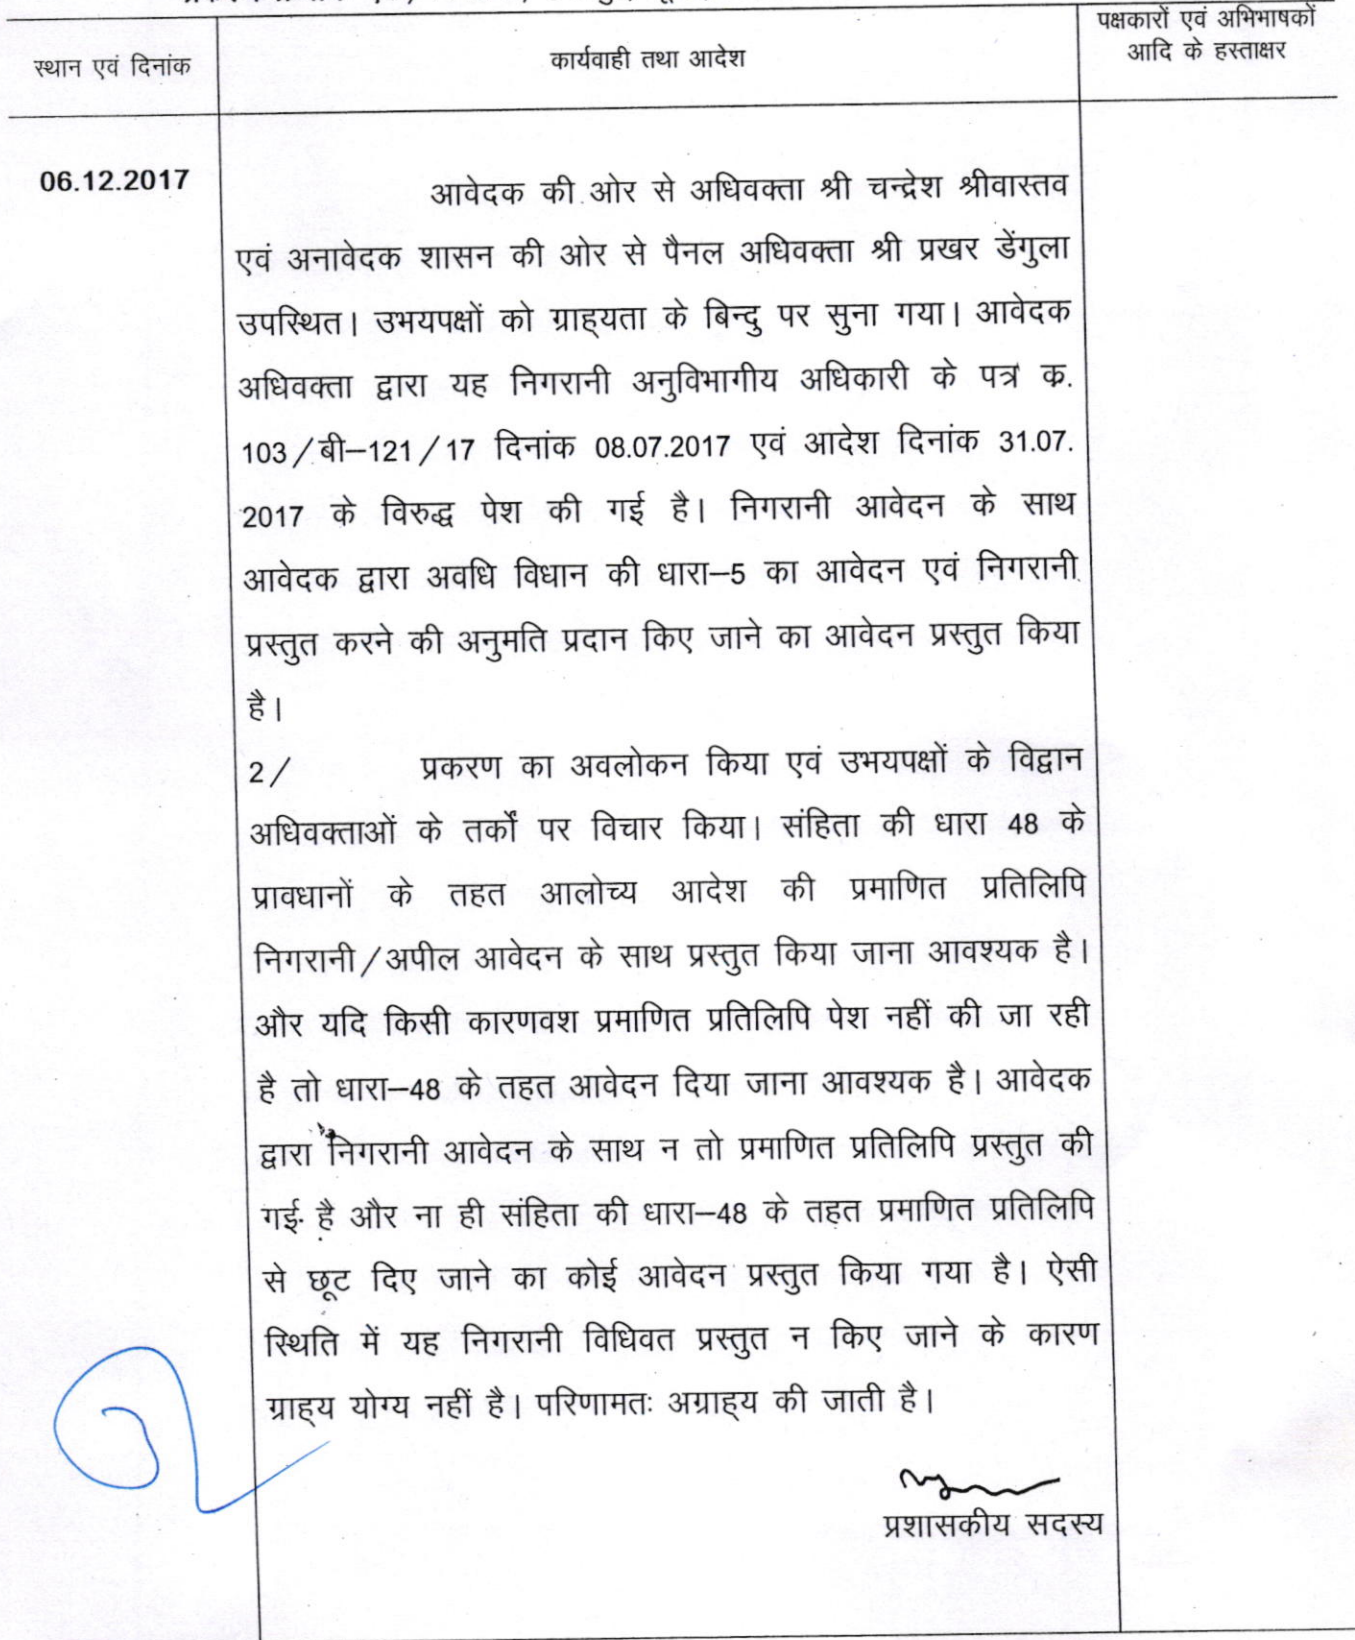 स्थान एवं दिनांक
कार्यवाही तथा आदेश
पक्षकारों एवं अभिभाषकों
आदि के हस्ताक्षर
06.12.2017
आवेदक की ओर से अधिवक्ता श्री चन्द्रेश श्रीवास्तव
एवं अनावेदक शासन की ओर से पैनल अधिवक्ता श्री प्रखर डेंगुला
उपस्थित। उभयपक्षों को ग्राह्यता के बिन्दु पर सुना गया। आवेदक
अधिवक्ता द्वारा यह निगरानी अनुविभागीय अधिकारी के पत्र क्र.
103/बी–121/17 दिनांक 08.07.2017 एवं आदेश दिनांक 31.07.
2017 के विरुद्ध पेश की गई है। निगरानी आवेदन के साथ
आवेदक द्वारा अवधि विधान की धारा–5 का आवेदन एवं निगरानी
प्रस्तुत करने की अनुमति प्रदान किए जाने का आवेदन प्रस्तुत किया
है।
2/ प्रकरण का अवलोकन किया एवं उभयपक्षों के विद्वान
अधिवक्ताओं के तर्कों पर विचार किया। संहिता की धारा 48 के
प्रावधानों के तहत आलोच्य आदेश की प्रमाणित प्रतिलिपि
निगरानी/अपील आवेदन के साथ प्रस्तुत किया जाना आवश्यक है।
और यदि किसी कारणवश प्रमाणित प्रतिलिपि पेश नहीं की जा रही
है तो धारा–48 के तहत आवेदन दिया जाना आवश्यक है। आवेदक
द्वारा निगरानी आवेदन के साथ न तो प्रमाणित प्रतिलिपि प्रस्तुत की
गई है और ना ही संहिता की धारा–48 के तहत प्रमाणित प्रतिलिपि
से छूट दिए जाने का कोई आवेदन प्रस्तुत किया गया है। ऐसी
स्थिति में यह निगरानी विधिवत प्रस्तुत न किए जाने के कारण
ग्राह्य योग्य नहीं है। परिणामतः अग्राह्य की जाती है।
प्रशासकीय सदस्य